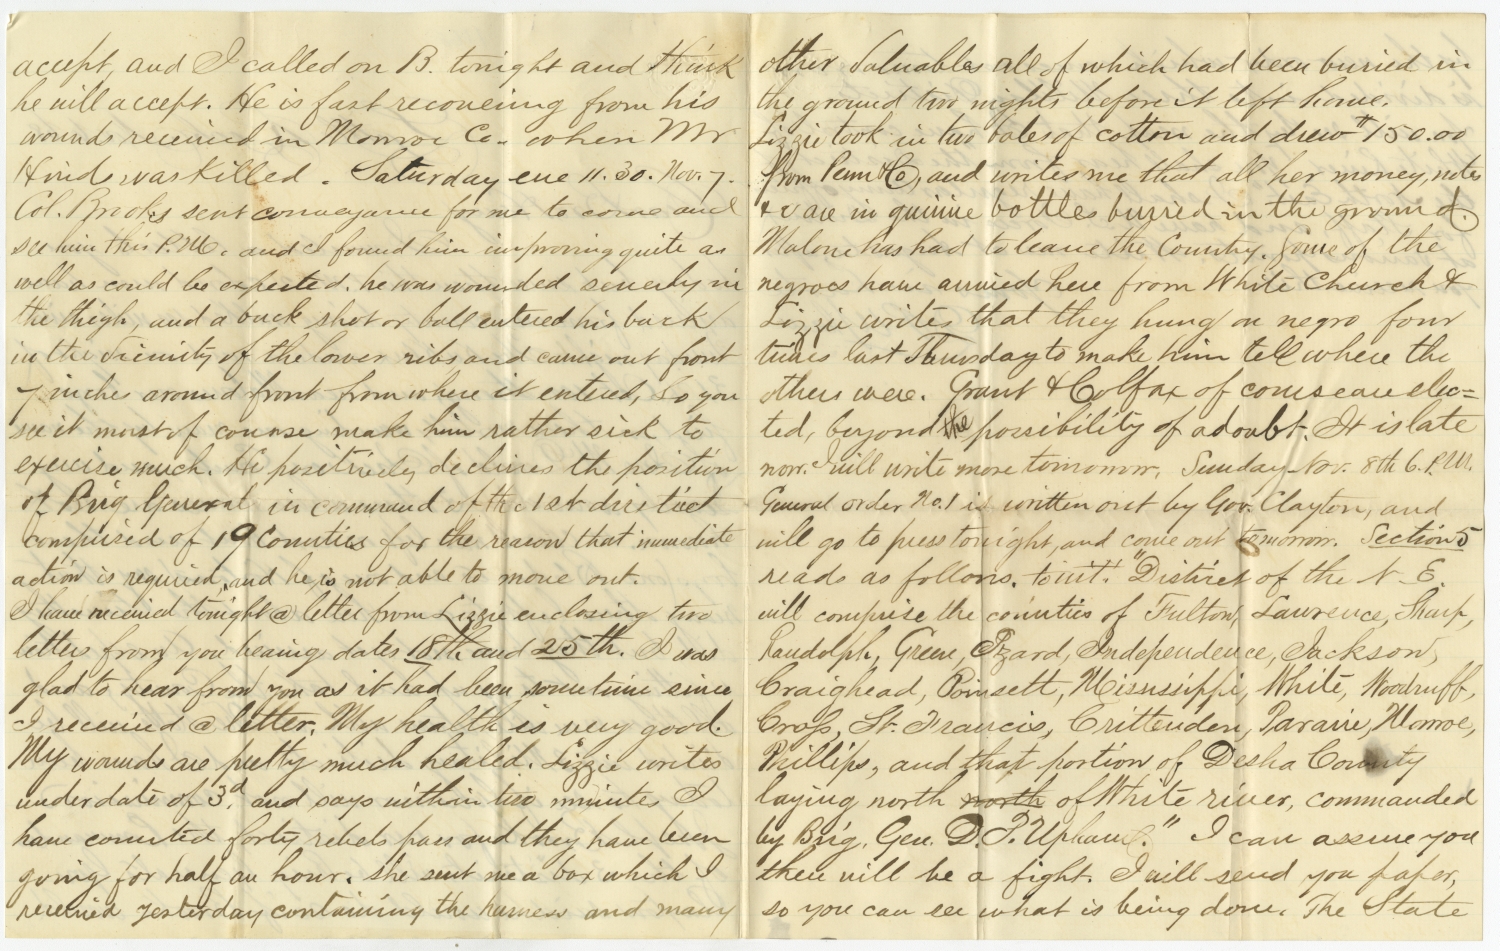 accept, and I called on B. tonight and think
he will accept. He is fast recoveing from his
wounds received in Monroe Co. when Mr
Hinds was killed. Saturday eve 11.30. Nov. 7.
Col. Brooks sent conveyance for me to come and
see him this P.M. and I found him improving quite as
well as could be expected. he was wounded severly in
the thigh, and a buck shot or ball entered his back
in the vicinity of the lower ribs and came out front
7 inches around front from where it entered, So you
see it must of course make him rather sick to
exercise much. He positively declines the position
of Brig General in command of the 1st district
comprised of 19 Counties for the reason that immediate
action is required, and he is not able to move out.
I have received tonight @ letter from Lizzie enclosing two
letters from you bearing dates 18th and 25th. I was
glad to hear from you as it had been sometime since
I received @ letter. My health is very good.
My wounds are pretty much healed. Lizzie writes
under date of 3d. and says within two minutes I
have counted forty rebels pass and they have been
going for half an hour. she sent me a box which I
received yesterday containing the harness and many
other valuables all of which had been buried in
the ground two nights before it left home.
Lizzie took in two bales of cotton and drew $150.00
from Penn & Co, and writes me that all her money, notes
&c are in quinine bottles burried in the ground.
Malone has had to leave the Country. Some of the
negroes have arrived here from White Church &
Lizzie writes that they hung on negro four
times last Thursday to make him tell where the
others were. Grant & Colfax of course are elec=
ted, beyond the possibility of a doubt. It is late
now. I will write more tomorrow. Sunday Nov. 8th 6. P.M.
General order No. 1 is written out by Gov. Clayton, and
will go to press tonight, and come out tomorrow. Section 5
reads as follows. towit: "District of the N. E.
will comprise the counties of Fulton, Lawrence, Sharp,
Randolph, Green, Izard, Independence, Jackson,
Craighead, Poinsett, Mississippi, White, Woodruff,
Cross, St. Francis, Crittenden, Parairie, Monroe,
Phillips, and that portion of Desha County
laying north north of White river, commanded
by Brig. Gen. D. P. Upham." I can assure you
there will be a fight. I will send you paper,
so you can see what is being done. The State